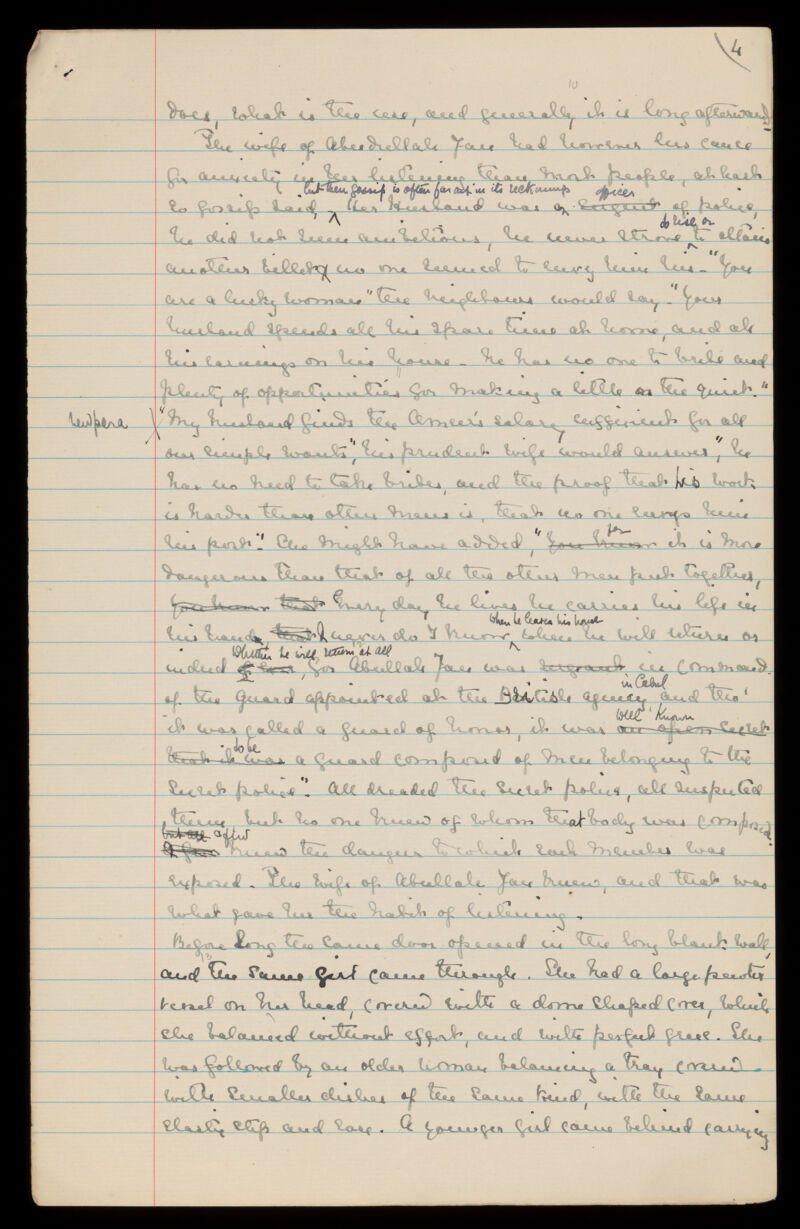 4
does, what is the use, and generally it is long afterwards
The wife of Abdullah Jan had however less cause
for anxiety in her listening than most people, at least
but then gossip is often far out in its reckonings officer
so gossip said, Her Husband was a sergent of police,
to rise or
he did not seem ambitious, he never strove to attain
another billet no one seemed to envy him his - "You
are a lucky woman" the neighbours would say - "Your
husband spends all his spare time at home, and all
his earnings on his house - he has no one to bribe and
plenty of opportunities for making a little on the quiet."
new para "My husband finds the Ameer's salary sufficient for all
our simple wants", his prudent wife would answer, "he
has no need to take bribes, and the proof that his work
is harder than other mens is, that no one envys him
his post". She might have added, "you know for it is more
dangerous than that of all the other men put together,
you know that Every day he lives he carries his life in
when he leaves his house
his hand, that never do I know when he will return or
whether he will return at all
indeed, for Abullah Jan was in command
in Cabul
of the guard appointed at the British agency and tho'
well known
it was called a guard of honor, it was an open secret
to be
that it was a guard composed of men belonging to the
secret police". All dreaded the secret police, all suspected
them, but no one knew of whom that body was composed
but all
knew the danger to which each member was
exposed. The wife of Abullah Jan knew, and that was
what gave her the habit of listening.
Before long the same door opened in the long blank wall,
and the same girl came through. She had a large pewter
vessel on her head, covered with a dome shaped cover, which
she balanced without effort, and with perfect grace. She
was followed by an older woman balancing a tray covered
with smaller dishes of the same kind, with the same
elastic step and ease. A younger girl came behind carrying